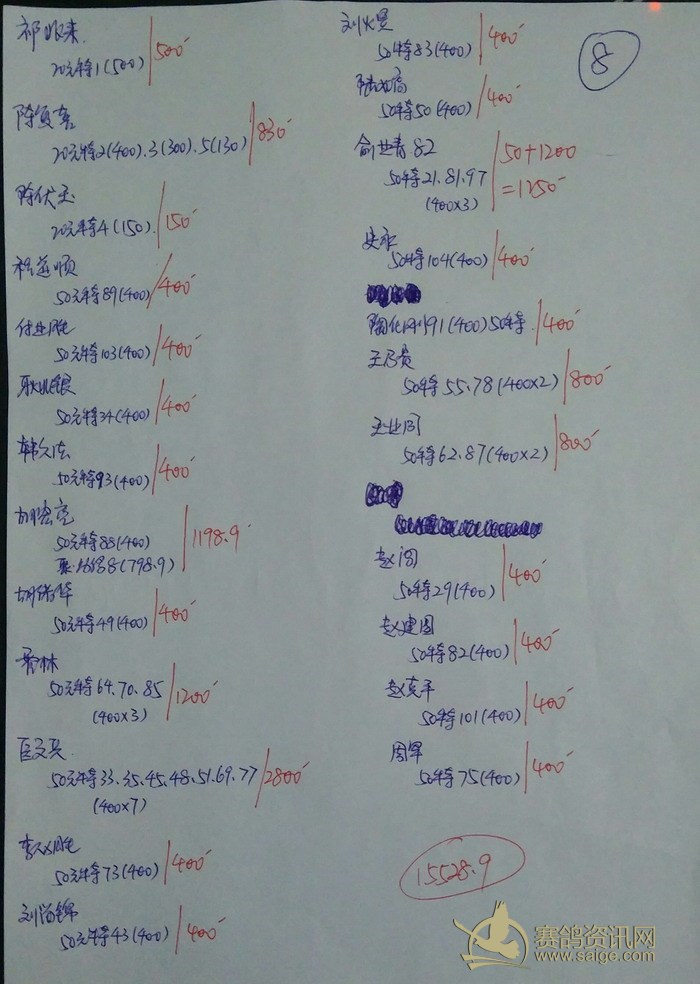 20元特1(500) 500
20元特2(400).3(300).5(130) 830
陈伏玉
20元特4(150) 150
程益顺
50元特89(400) 400
付业胜
50元特103(400) 400
耿兆银
50元特34(400) 400
韩久法
50元特93(400) 400
50元特88(400)
8(798.9) 1198.9
胡绪华
50元特49(400) 400
林
50元特64.70.85 1200
(400×3)
匡文兵
50元特33.35.45.48.51.69.77 2800
(400×7)
50元特73(400) 400
50元特43(400) 400
8
50特83(400) 400
50特50(400) 400
俞业青 82
50特21.81.97 50+1200
(400×3) =1250
史永
50特104(400) 400
91(400)50特 400
王乃贵
50特55.78(400×2) 800
王业同
50特62.87(400×2) 800
50特29(400) 400
赵建国
50特82(400) 400
赵克平
50特101(400) 400
周军
50特75(400) 400
15528.9
赛鸽资讯网
www.saige.com